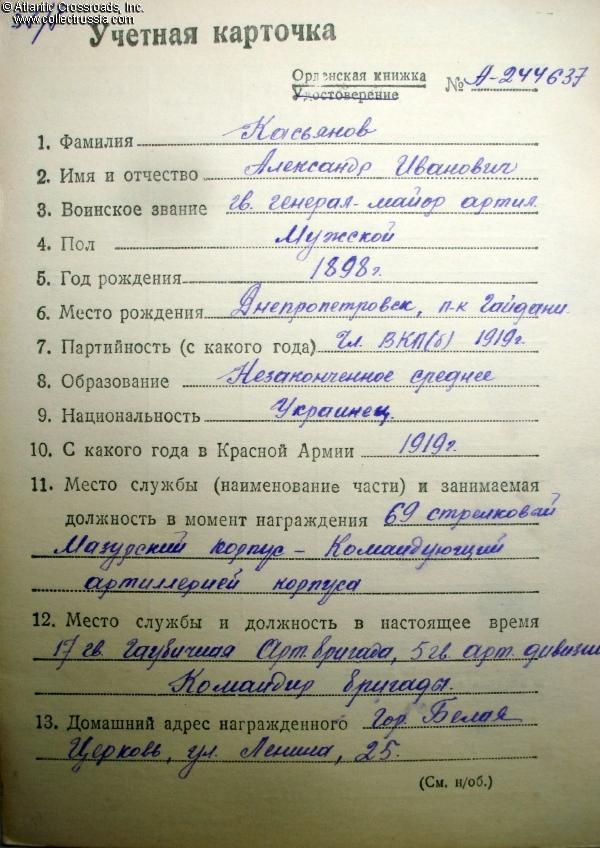 © Atlantic Crossroads, Inc.
www.collectrussia.com
Учетная карточка
Орденская книжка
Удостоверение
№ А-244637
1. Фамилия Касьянов
2. Имя и отчество Александр Иванович
3. Воинское звание гв. генерал-майор артил.
4. Пол Мужской
5. Год рождения 1898г.
6. Место рождения Днепропетровск, п-к Гайдани.
7. Партийность (с какого года) Чл. ВКП(б) 1919г.
8. Образование Незаконченное среднее
9. Национальность Украинец.
10. С какого года в Красной Армии 1919г.
11. Место службы (наименование части) и занимаемая
должность в момент награждения 69 стрелковый
Мазурский корпус - Командующий
артиллерией корпуса
12. Место службы и должность в настоящее время
17 гв. Гаубичная Арт. бригада, 5 гв. арт. дивизии
Командир бригады.
13. Домашний адрес награжденного Гор. Белая
Церковь, ул. Ленина, 25.
(См. н/об.)